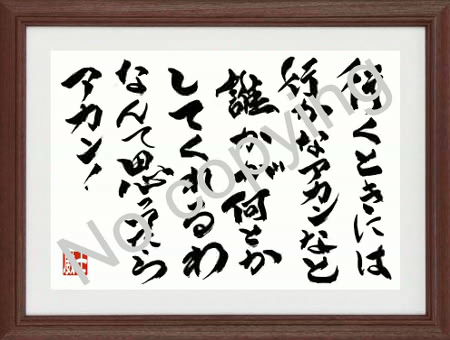 行くときには
行かなアカンなと
誰かが何とか
してくれるわ
なんて思ったら
アカン!
No copying